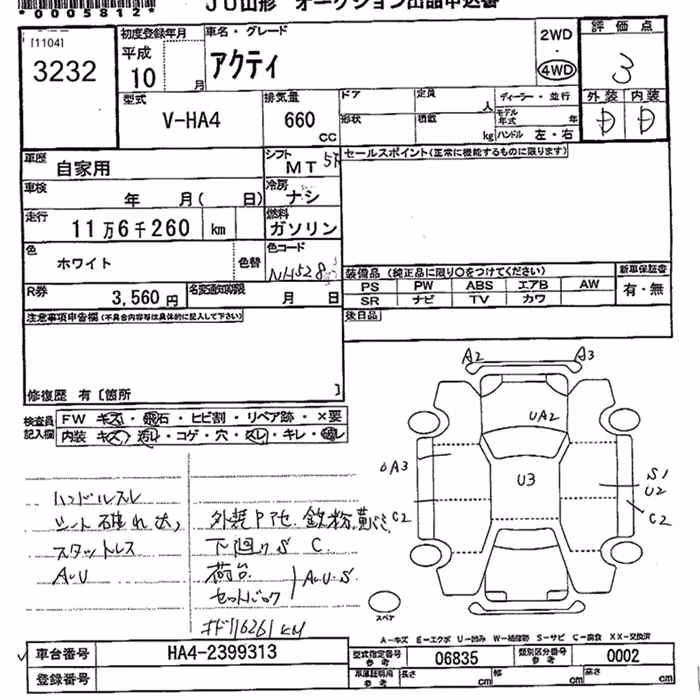 *0005812*
JU山形 オークション出品申込書
[1104]
3232
初度登録年月
平成
10
月
車名・グレード
アクティ
2WD
・
4WD
評価点
3
外装 内装
D D
型式
V-HA4
排気量
660
cc
ドア
形状
定員
人
積載
kg
ディーラー・並行
モデル年式
年
ハンドル 左・右
車歴
自家用
シフト
MT 5F
セールスポイント(正常に機能するものに限ります)
車検
年 月( 日)
冷房
ナシ
走行
11万6千260 km
燃料
ガソリン
色
ホワイト
色替
色コード
NH528
R券
3,560 円
名変通知期限
月 日
装備品 (純正品に限り○をつけてください)
PS PW ABS エアB AW
SR ナビ TV カワ
新車保証書
有・無
後日品
注意事項申告欄(不具合内容等は具体的に記入して下さい)
修復歴 有 [箇所 ]
検査員記入欄
FW キズ・飛石・ヒビ割・リペア跡・×要
内装 キズ・汚レ・コゲ・穴・スレ・キレ・破レ
A2 A3
UA2
UA3
U3
S1
U2
C2
C2
スペヤ
ハンドルスレ
シート破れ大
スタットレス
A.U
外装Pアセ 鉄粉
下廻りS C
荷台
セットバック
A.U.S
116261KM
A-キズ E-エクボ U-凹み W-補修跡 S-サビ C-腐食 XX-交換済
車台番号
HA4-2399313
型式指定番号
参考
06835
類別区分番号
参考
0002
登録番号
車庫証明用
参考
長さ cm
幅 cm
高さ cm